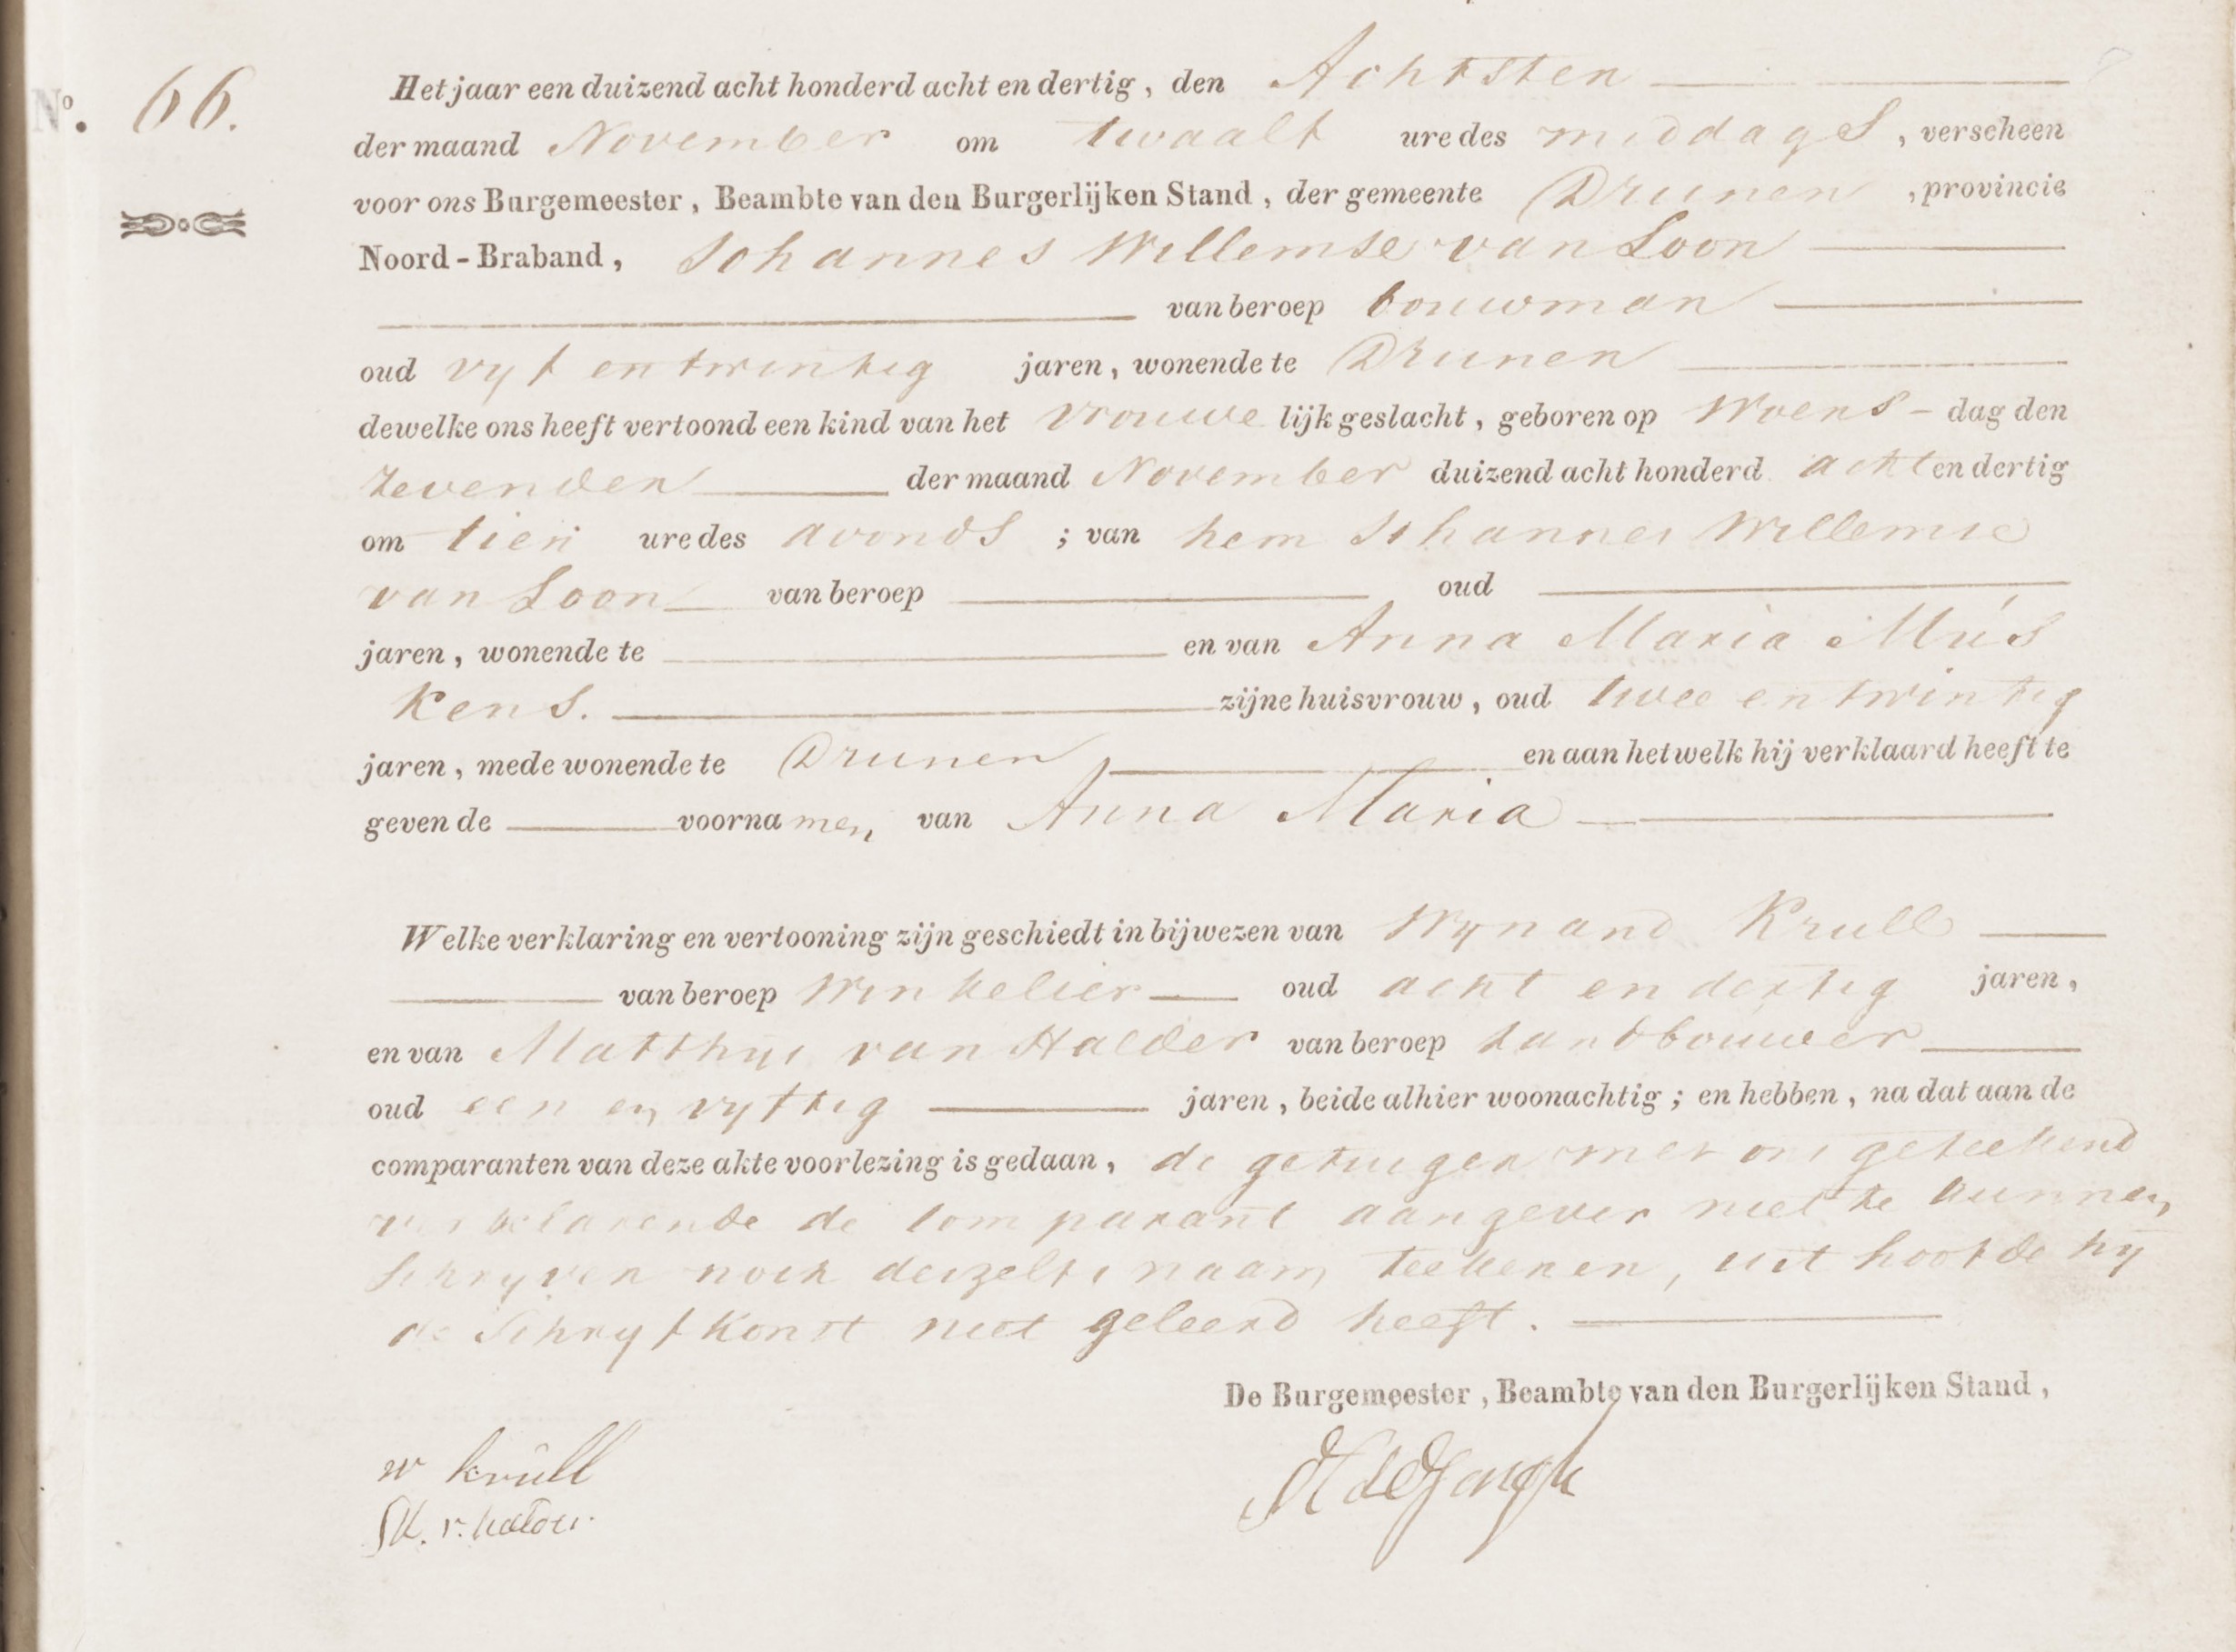 No. 66.
Het jaar een duizend acht honderd acht en dertig, den Achtsten
der maand November om twaalf ure des middags, verscheen
voor ons Burgemeester, Beambte van den Burgerlijken Stand, der gemeente Drunen, provincie
Noord-Braband, Johannes Willemse van Loon
van beroep bouwman
oud vyf en twintig jaren, wonende te Drunen
dewelke ons heeft vertoond een kind van het vrouwelijk geslacht, geboren op Woens-dag den
zevenden der maand November duizend acht honderd acht en dertig
om tien ure des avonds; van hem Johannes Willemse
van Loon van beroep oud
jaren, wonende te en van Anna Maria Mus
kens. zijne huisvrouw, oud twee en twintig
jaren, mede wonende te Drunen en aan hetwelk hij verklaard heeft te
geven de voornamen van Anna Maria
Welke verklaring en vertooning zijn geschiedt in bijwezen van Wynand Krull
van beroep Winkelier oud acht en dertig jaren,
en van Matthys van Halder van beroep Landbouwer
oud een en vyftig jaren, beide alhier woonachtig; en hebben, na dat aan de
comparanten van deze akte voorlezing is gedaan, de getuigen met ons geteekend
verklarende de comparant aangever niet te kunnen
schryven noch deszelfs naam teekenen, uit hoofde hy
de Schryfkonst niet geleerd heeft.
De Burgemeester, Beambte van den Burgerlijken Stand,
w krull